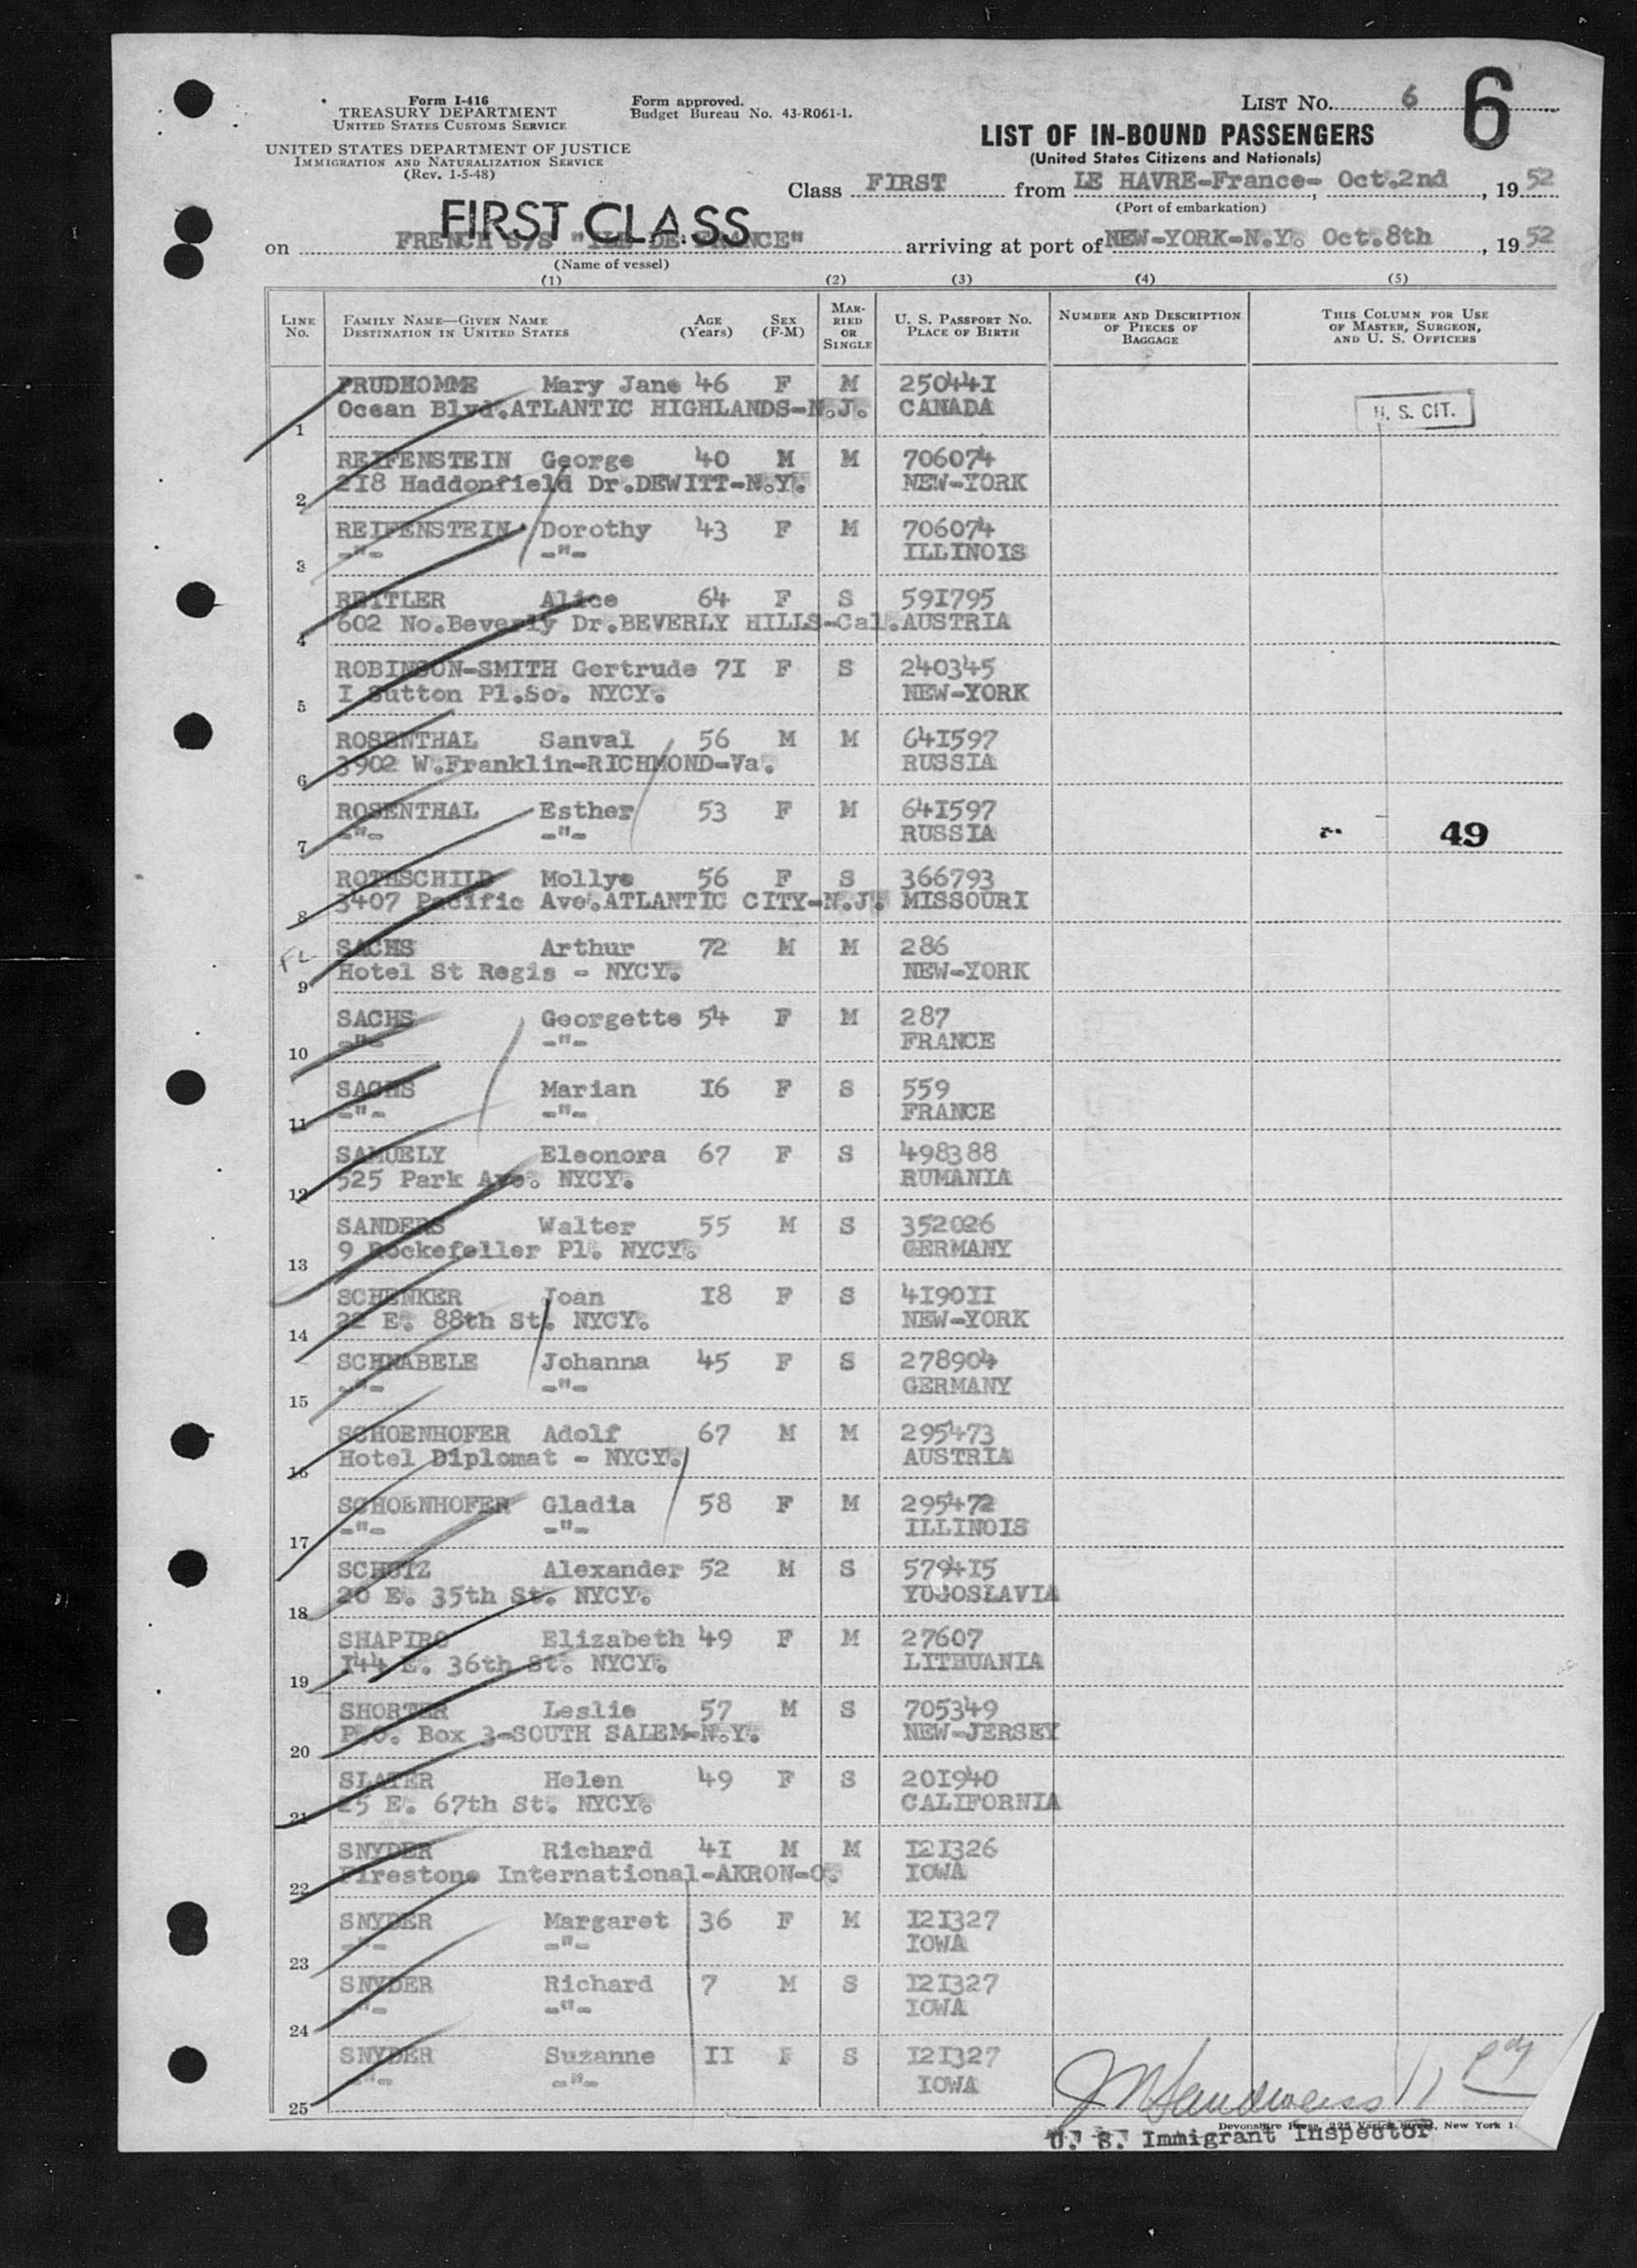 Form I-416
TREASURY DEPARTMENT
UNITED STATES CUSTOMS SERVICE
UNITED STATES DEPARTMENT OF JUSTICE
IMMIGRATION AND NATURALIZATION SERVICE
(Rev. 1-5-48)
Form approved.
Budget Bureau No. 43-R061-1.
LIST NO. 6 6
LIST OF IN-BOUND PASSENGERS
(United States Citizens and Nationals)
Class FIRST from LE HAVRE-France- Oct.2nd, 1952
(Port of embarkation)
FIRST CLASS
on FRENCH S/S "ILE DE FRANCE" arriving at port of NEW-YORK-N.Y. Oct.8th, 1952
(Name of vessel)
(1) (2) (3) (4) (5)
LINE NO. FAMILY NAME—GIVEN NAME DESTINATION IN UNITED STATES AGE (Years) SEX (F-M) MARRIED OR SINGLE U. S. PASSPORT NO. PLACE OF BIRTH NUMBER AND DESCRIPTION OF PIECES OF BAGGAGE THIS COLUMN FOR USE OF MASTER, SURGEON, AND U. S. OFFICERS
PRUDHOMME Mary Jane 46 F M 25044I
1 Ocean Blvd.ATLANTIC HIGHLANDS-N.J. CANADA U. S. CIT.
REIFENSTEIN George 40 M M 706074
2 2I8 Haddonfield Dr.DEWITT-N.Y. NEW-YORK
REIFENSTEIN Dorothy 43 F M 706074
3 -"- -"- ILLINOIS
REITLER Alice 64 F S 59I795
4 602 No.Beverly Dr.BEVERLY HILLS-Cal.AUSTRIA
ROBINSON-SMITH Gertrude 7I F S 240345
5 I Sutton Pl.So. NYCY. NEW-YORK
ROSENTHAL Sanval 56 M M 64I597
6 3902 W.Franklin-RICHMOND-Va. RUSSIA
ROSENTHAL Esther 53 F M 64I597
7 -"- -"- RUSSIA 49
ROTHSCHILD Mollye 56 F S 366793
8 3407 Pacific Ave.ATLANTIC CITY-N.J. MISSOURI
SACHS Arthur 72 M M 286
9 Hotel St Regis - NYCY. NEW-YORK
SACHS Georgette 54 F M 287
10 -"- -"- FRANCE
SACHS Marian I6 F S 559
11 -"- -"- FRANCE
SAMUELY Eleonora 67 F S 498388
12 525 Park Ave. NYCY. RUMANIA
SANDERS Walter 55 M S 352026
13 9 Rockefeller Pl. NYCY. GERMANY
SCHENKER Joan I8 F S 4I90II
14 22 E. 88th St. NYCY. NEW-YORK
SCHNABELE Johanna 45 F S 278904
15 -"- -"- GERMANY
SCHOENHOFER Adolf 67 M M 295473
16 Hotel Diplomat - NYCY. AUSTRIA
SCHOENHOFER Gladia 58 F M 295472
17 -"- -"- ILLINOIS
SCHUTZ Alexander 52 M S 5794I5
18 20 E. 35th St. NYCY. YUGOSLAVIA
SHAPIRO Elizabeth 49 F M 27607
19 I44 E. 36th St. NYCY. LITHUANIA
SHORTER Leslie 57 M S 705349
20 P.O. Box 3-SOUTH SALEM-N.Y. NEW-JERSEY
SLATER Helen 49 F S 20I940
21 25 E. 67th St. NYCY. CALIFORNIA
SNYDER Richard 4I M M I2I326
22 Firestone International-AKRON-O. IOWA
SNYDER Margaret 36 F M I2I327
23 -"- -"- IOWA
SNYDER Richard 7 M S I2I327
24 -"- -"- IOWA
SNYDER Suzanne II F S I2I327
25 -"- -"- IOWA
Devonshire Press, 225 Varick Street, New York 1
U. S. Immigrant Inspector